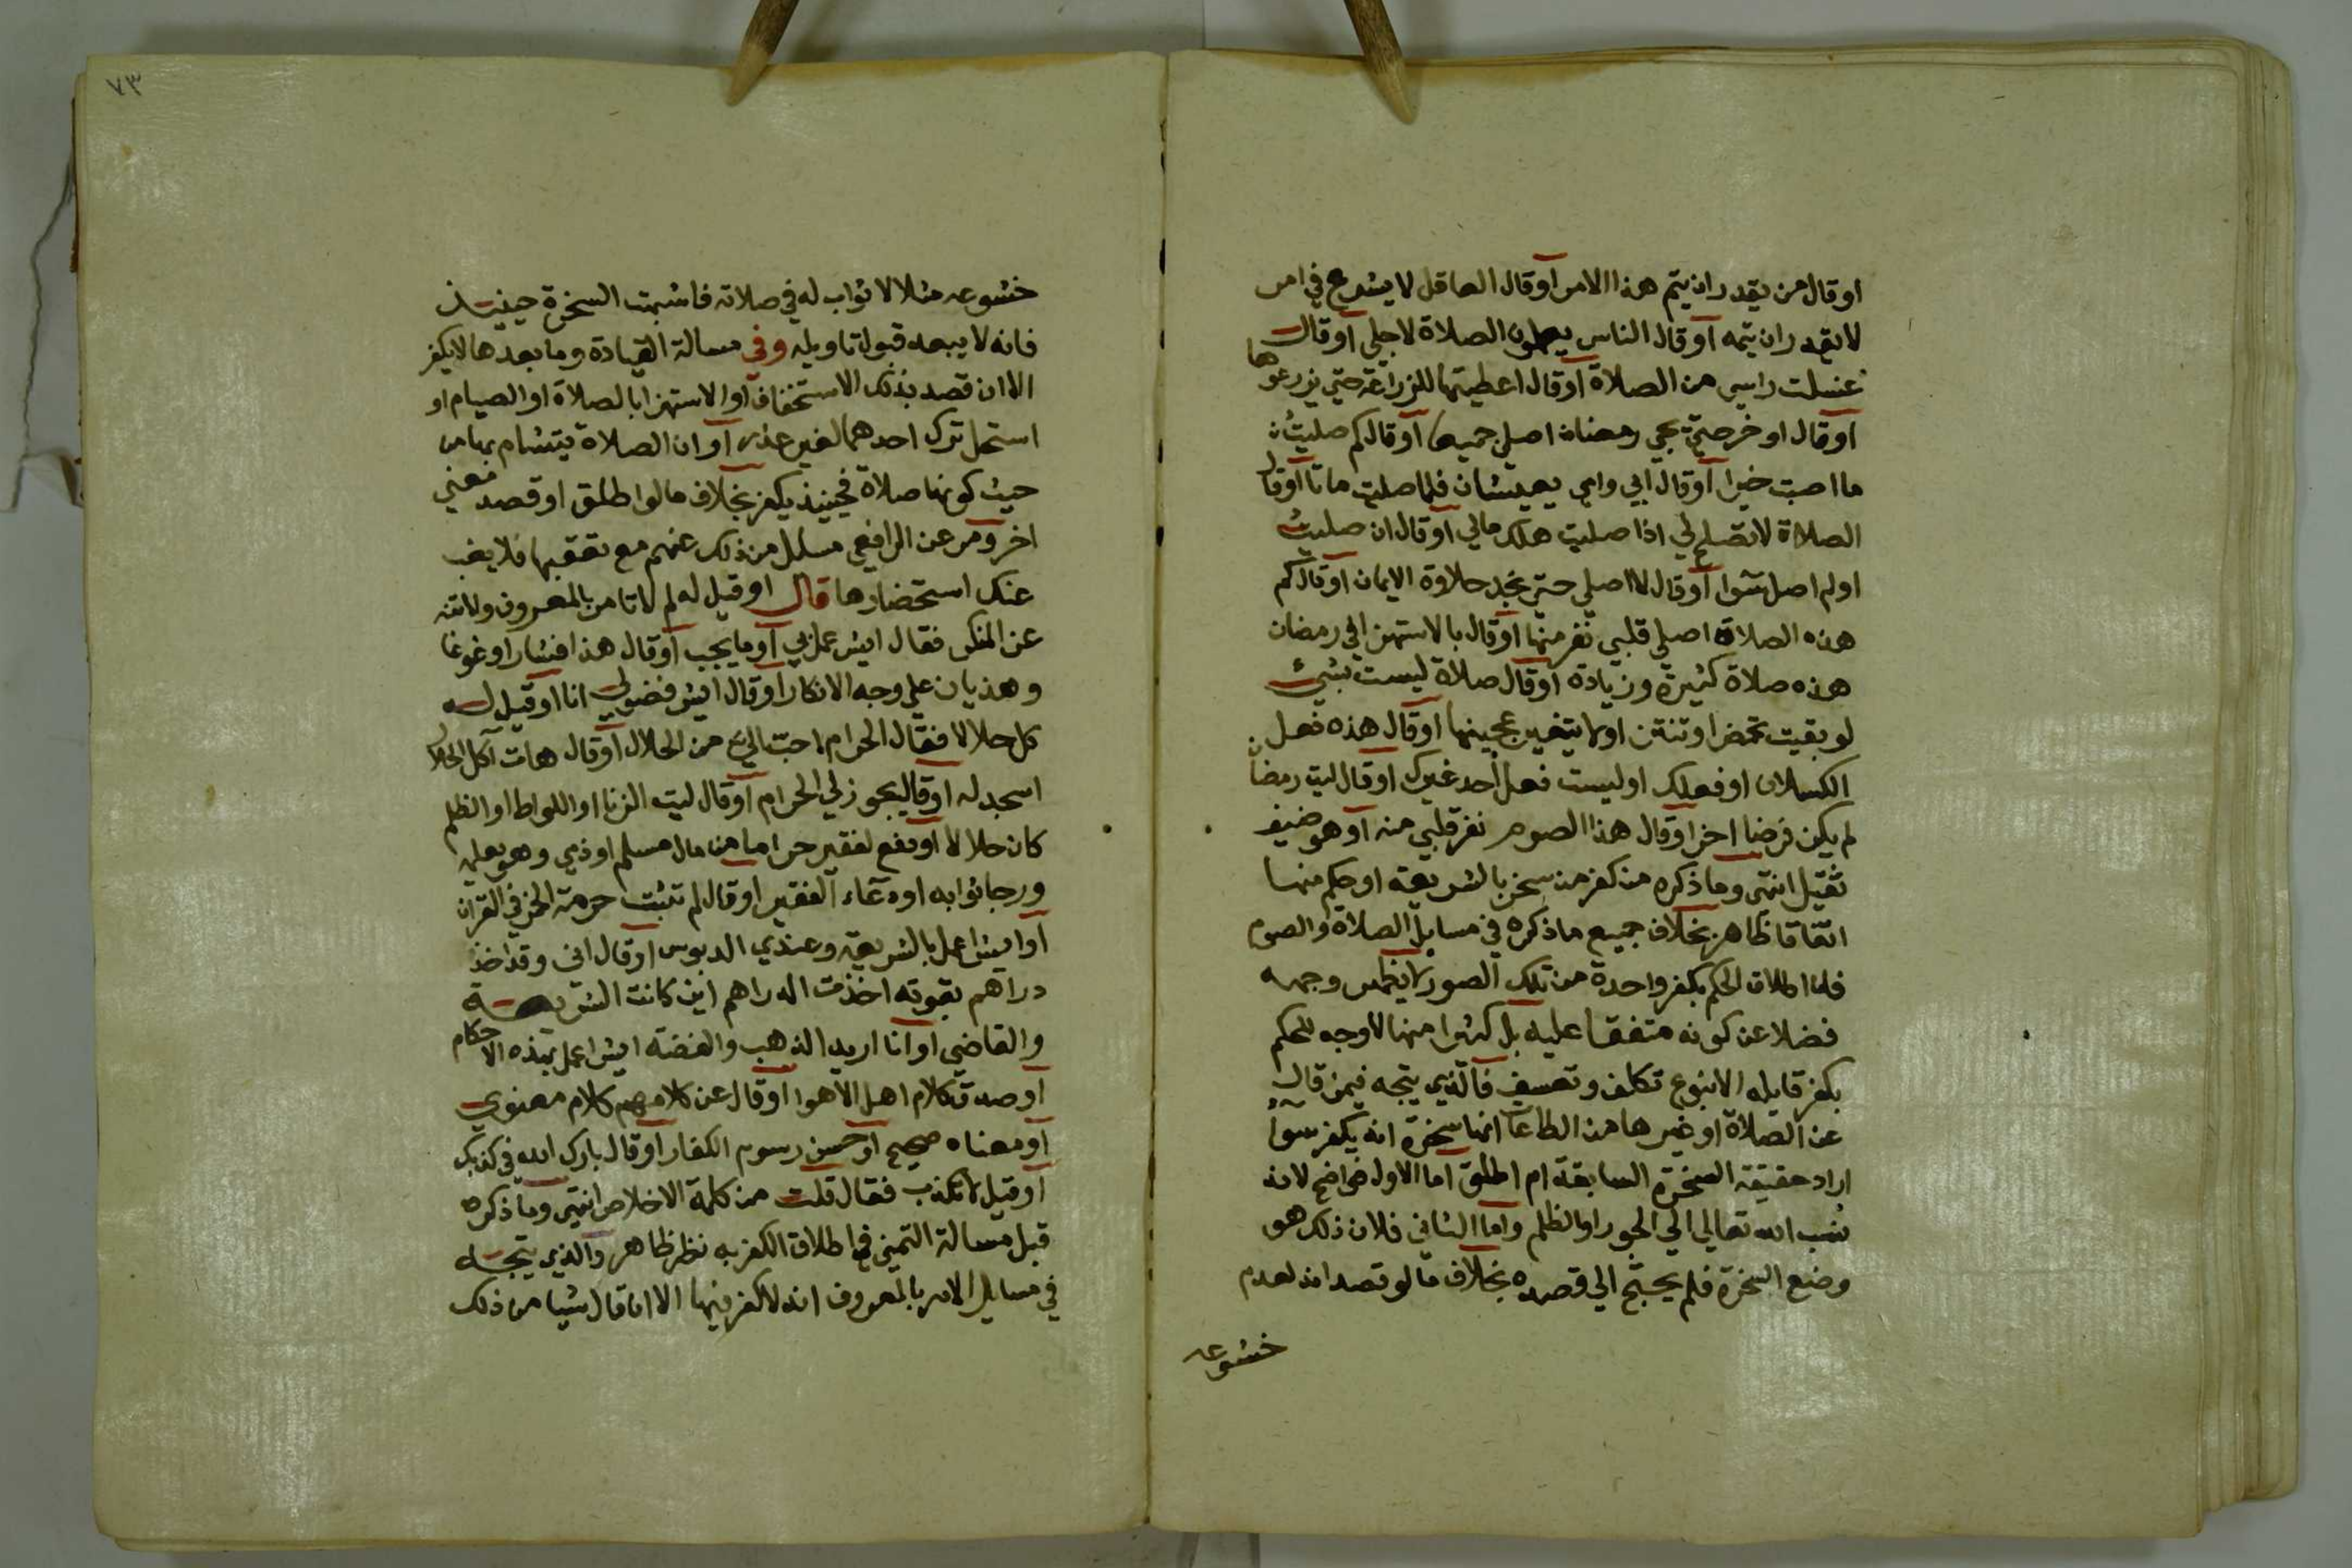 او قال من يقدر ان يتم هذا الامر او قال العاقل لا يشرع في امر
لا يقدر ان يتمه او قال الناس يعملون الصلاة لاجلي او قال
غسلت راسي من الصلاة او قال اعطيتها للزراعة حتى يزرعوها
او قال اوخر حتى يجي رمضان اصلي جميعا او قال كم صليت
ما اصبت خيرا او قال ابي وامي يعيشان فلما صليت ماتا او قال
الصلاة لا تصلح لي اذا صليت هلك مالي او قال ان صليت
او لم اصل سوا او قال لا اصلي حتى نجد حلاوة الايمان او قال كم
هذه الصلاة اصلي قلبي نفر منها او قال بالاستهزا في رمضان
هذه صلاة كثيرة وزيادة او قال صلاة ليست بشيء
لو بقيت تحمض او تنتن او لا يتغير عجينها او قال هذه فعل
الكسلان او فعلك او ليست فعل احد غيرك او قال ليت رمضان
لم يكن فرضا اخر او قال هذا الصوم نفر قلبي منه او هو ضيف
ثقيل انتهى وما ذكره من كفر من سخر بالشريعة او حكم منها
اتفاقا ظاهر بخلاف جميع ما ذكره في مسايل الصلاة والصوم
فان اطلاق الحكم بكفر واحدة من تلك الصور لا يظهر وجهه
فضلا عن كونه متفقا عليه بل كثيرا منها لا وجه للحكم
بكفر قايله الا بنوع تكلف وتعسف فالذي يتجه فيمن قال
عن الصلاة او غيرها من الطاعات انها سخرة انه يكفر سوا
اراد حقيقة السخرة السابقة ام اطلق اما الاول فواضح لانه
نسب الله تعالى الى الجور او الظلم واما الثاني فلان ذلك هو
وضع السخرة فلم يحتج الى قصده بخلاف ما لو قصد انه لعدم
خشوعه
٧٣
خشوعه مثلا لا ثواب له في صلاته فاشبهت السخرة حينيذ
فانه لا يبعد قبول تاويله وفي مسالة القيادة وما بعدها لا يكفر
الا ان قصد بذلك الاستخفاف او الاستهزا بالصلاة او الصيام او
استحل ترك احدهما لغير عذر او ان الصلاة يتشام بها من
حيث كونها صلاة فحينيذ يكفر بخلاف ما لو اطلق او قصد معنى
اخر ومر عن الرافعي مسايل من ذلك عنهم مع تعقبها فلا يغب
عنك استحضارها قال او قيل له لم لا تامر بالمعروف ولا تنه
عن المنكر فقال ايش عمل بي او ما يجب او قال هذا افشار او غوغا
وهذيان على وجه الانكار او قال ايش فضولي انا او قيل له
كل حلالا فقال الحرام احب الي من الحلال او قال هات آكل الحلال
اسجد له او قال يجوز لي الحرام او قال ليت الزنا او اللواط او الظلم
كان حلالا او دفع لفقير حراما من مال مسلم او ذمي وهو يعلمه
ورجا ثوابه او دعاء الفقير او قال لم تثبت حرمة الخمر في القران
او ايش اعمل بالشريعة وعندي الدبوس او قال اني وقد اخذ
دراهم بقوته اخذت الدراهم اين كانت الشريعة
والقاضي او انا اريد الذهب والفضة ايش اعمل بهذه الاحكام
او صدق كلام اهل الاهوا او قال عن كلامهم كلام معنوي
او معناه صحيح او حسن رسوم الكفار او قال بارك الله في كذبك
او قيل لا تكذب فقال قلت من كلمة الاخلاص انتهى وما ذكره
قبل مسالة التمني في اطلاق الكفر به نظر ظاهر والذي يتجه
في مسايل الامر بالمعروف انه لا كفر فيها الا ان قال شيا من ذلك